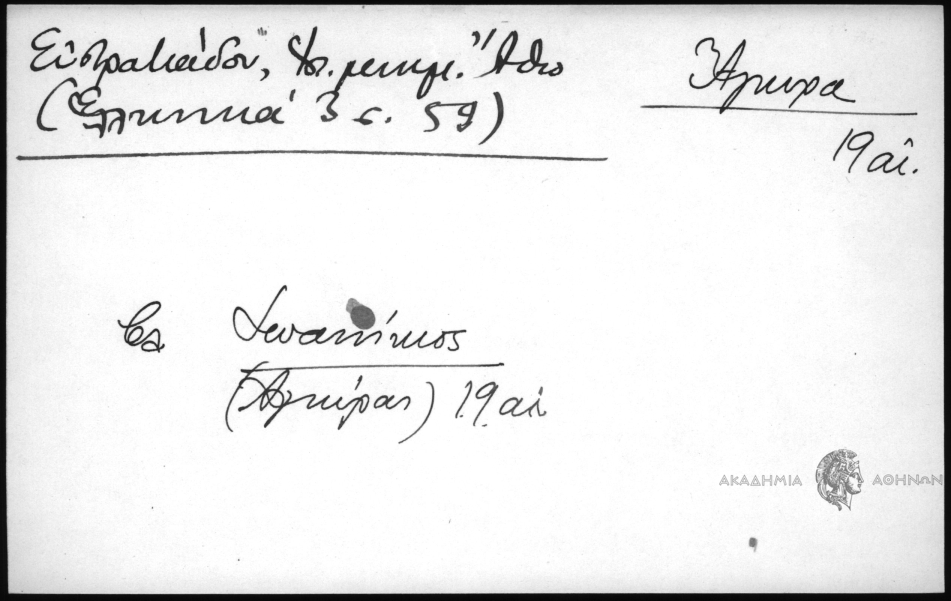 Εὐστρατιάδου, Ἱστ. μνημ. Ἄθω
(Ἑλληνικά 3 σ. 59)
Ἄγκυρα
19 αἰ.
βλ Ἰωαννίκιος
(Ἀγκύρας) 19 αἰ.
ΑΚΑΔΗΜΙΑ ΑΘΗΝΩΝ